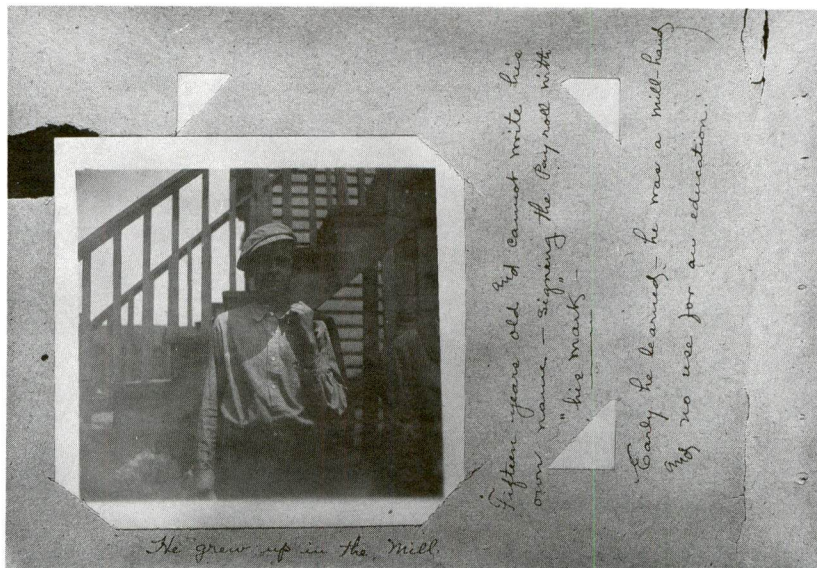 He grew up in the Mill.
Fifteen years old and cannot write his
own name — signing the Payroll with
"his mark —
Early he learned — he was a mill-hand
and no use for an education.